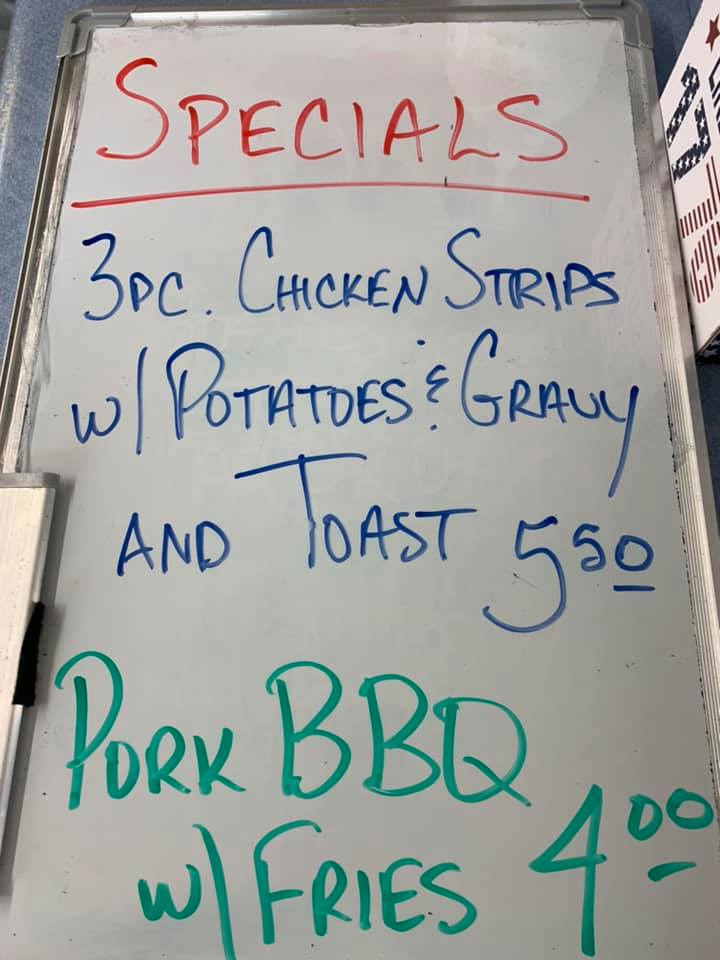 SPECIALS
3PC. CHICKEN STRIPS
W/ POTATOES & GRAVY
AND TOAST 5 50
PORK BBQ
W/ FRIES 4 00